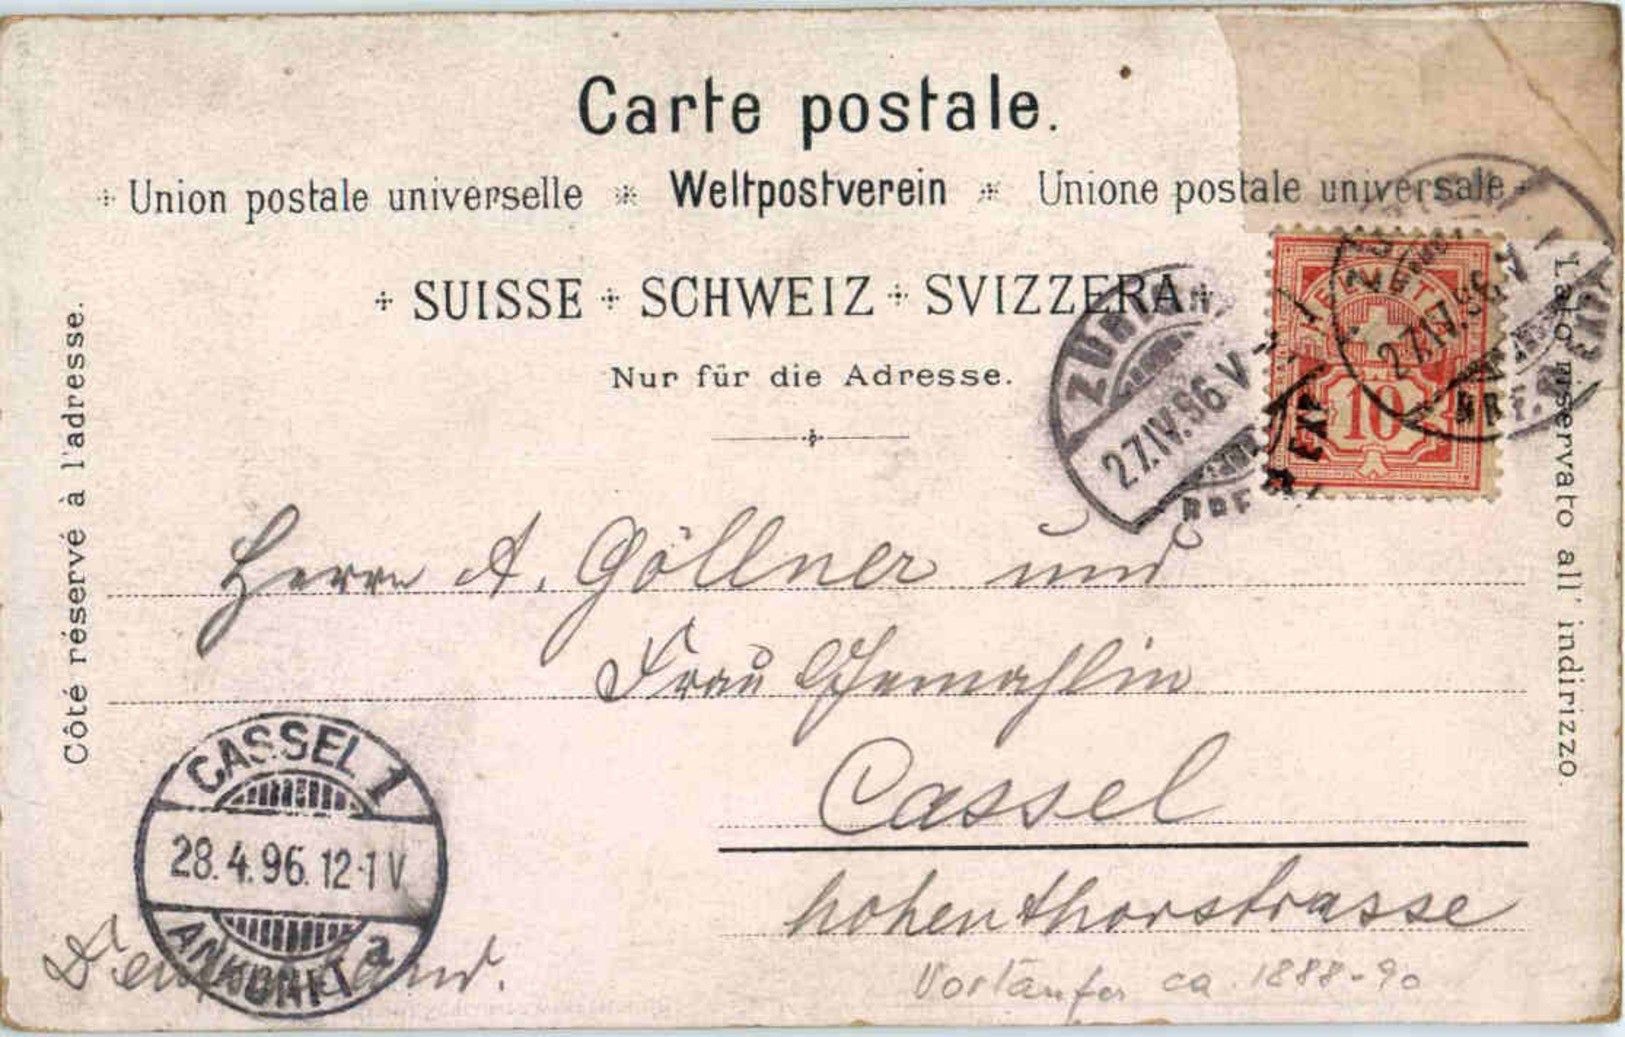 Carte postale.
Union postale universelle * Weltpostverein * Unione postale universale
SUISSE + SCHWEIZ + SVIZZERA
Nur für die Adresse.
Côté réservé à l'adresse.
Lato riservato all' indirizzo.
ZÜRICH
27.IV.96.V
BRF. EXP.
HELVETIA
10
ZÜRICH
27.IV.96.V
BRF. EXP.
Herrn A. Göllner und
Frau Gemahlin
Cassel
hohenthorstrasse
Deutschland.
CASSEL 1
28.4.96.12-1V
ANKUNFT a
Vorläufer ca. 1888-90